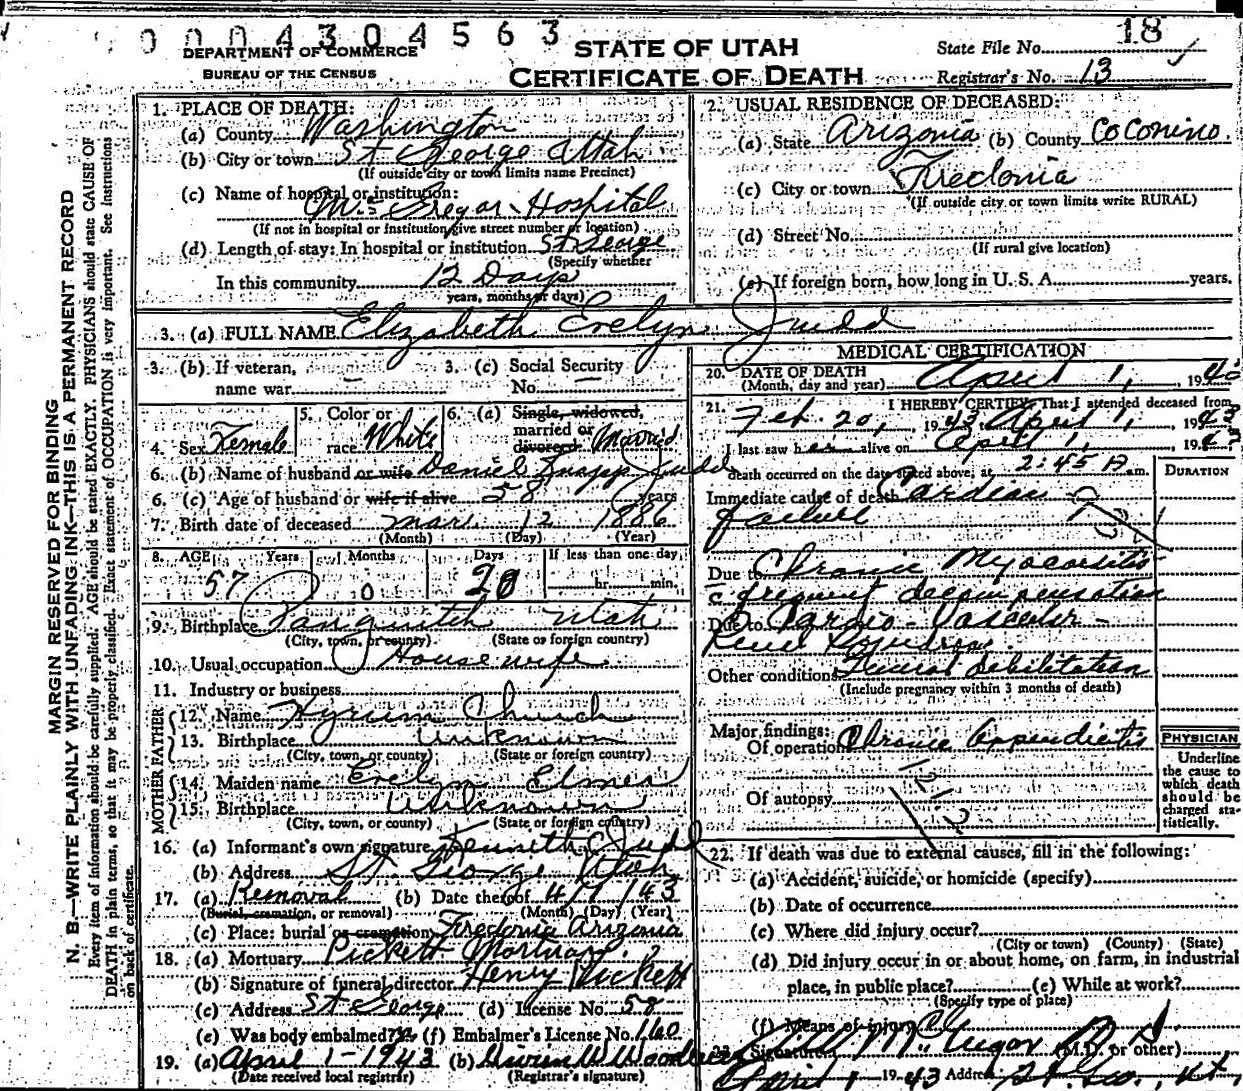 0004304563
DEPARTMENT OF COMMERCE
BUREAU OF THE CENSUS
STATE OF UTAH
CERTIFICATE OF DEATH
State File No. 18
Registrar's No. 13
MARGIN RESERVED FOR BINDING
N. B.—WRITE PLAINLY WITH UNFADING INK—THIS IS A PERMANENT RECORD
Every item of information should be carefully supplied. AGE should be stated EXACTLY. PHYSICIANS should state CAUSE OF
DEATH in plain terms, so that it may be properly classified. Exact statement of OCCUPATION is very important. See instructions
on back of certificate.
1. PLACE OF DEATH:
(a) County Washington
(b) City or town St George Utah
(If outside city or town limits name Precinct)
(c) Name of hospital or institution:
McGregor Hospital
(If not in hospital or institution give street number or location)
(d) Length of stay: In hospital or institution St George
(Specify whether
In this community 12 Days
years, months or days)
2. USUAL RESIDENCE OF DECEASED:
(a) State Arizonia (b) County Coconino.
(c) City or town Fredonia
(If outside city or town limits write RURAL)
(d) Street No.
(If rural give location)
(e) If foreign born, how long in U. S. A. years.
3. (a) FULL NAME Elizabeth Evelyn Judd
3. (b) If veteran, name war —
3. (c) Social Security No. —
4. Sex Female
5. Color or race White
6. (a) Single, widowed, married or divorced Married
6. (b) Name of husband or wife Daniel Knapp Judd
6. (c) Age of husband or wife if alive 58 years
7. Birth date of deceased Mar. 12 1886
(Month) (Day) (Year)
8. AGE Years Months Days If less than one day
57 0 20 hr. min.
9. Birthplace Panguitch Utah
(City, town, or county) (State or foreign country)
10. Usual occupation Housewife
11. Industry or business
FATHER
12. Name Hyrum Church
13. Birthplace Unknown
(City, town, or county) (State or foreign country)
MOTHER
14. Maiden name Evelyn Elmer
15. Birthplace Unknown
(City, town, or county) (State or foreign country)
16. (a) Informant's own signature Kenneth Judd
(b) Address St. George Utah
17. (a) Removal (b) Date thereof 4/1/43
(Burial, cremation, or removal) (Month) (Day) (Year)
(c) Place: burial or cremation Fredonia Arizonia
18. (a) Mortuary Pickett Mortuary
(b) Signature of funeral director Henry Pickett
(c) Address St George (d) License No. 58
(e) Was body embalmed? (f) Embalmer's License No. 160
19. (a) April 1-1943 (b)
(Date received local registrar) (Registrar's signature)
MEDICAL CERTIFICATION
20. DATE OF DEATH
(Month, day and year) April 1, 1943
21. I HEREBY CERTIFY, That I attended deceased from
Feb. 20, 1943, April 1, 1943
I last saw her alive on April 1, 194
death occurred on the date stated above, at 2:45 A m.
DURATION
Immediate cause of death Cardiac
failure
Due to Chronic Myocarditis
c frequent decompensation
Due to Cardio-Vascular-
Renal Syndrome
Other conditions General debilitation
(Include pregnancy within 3 months of death)
Major findings:
Of operation Chronic Appendicitis
Of autopsy
PHYSICIAN
Underline
the cause to
which death
should be
charged sta-
tistically.
22. If death was due to external causes, fill in the following:
(a) Accident, suicide, or homicide (specify)
(b) Date of occurrence
(c) Where did injury occur?
(City or town) (County) (State)
(d) Did injury occur in or about home, on farm, in industrial
place, in public place? (e) While at work?
(Specify type of place)
(f) Means of injury
23. Signature McGregor (M.D. or other)
April 1 1943 Address St Geo. Ut